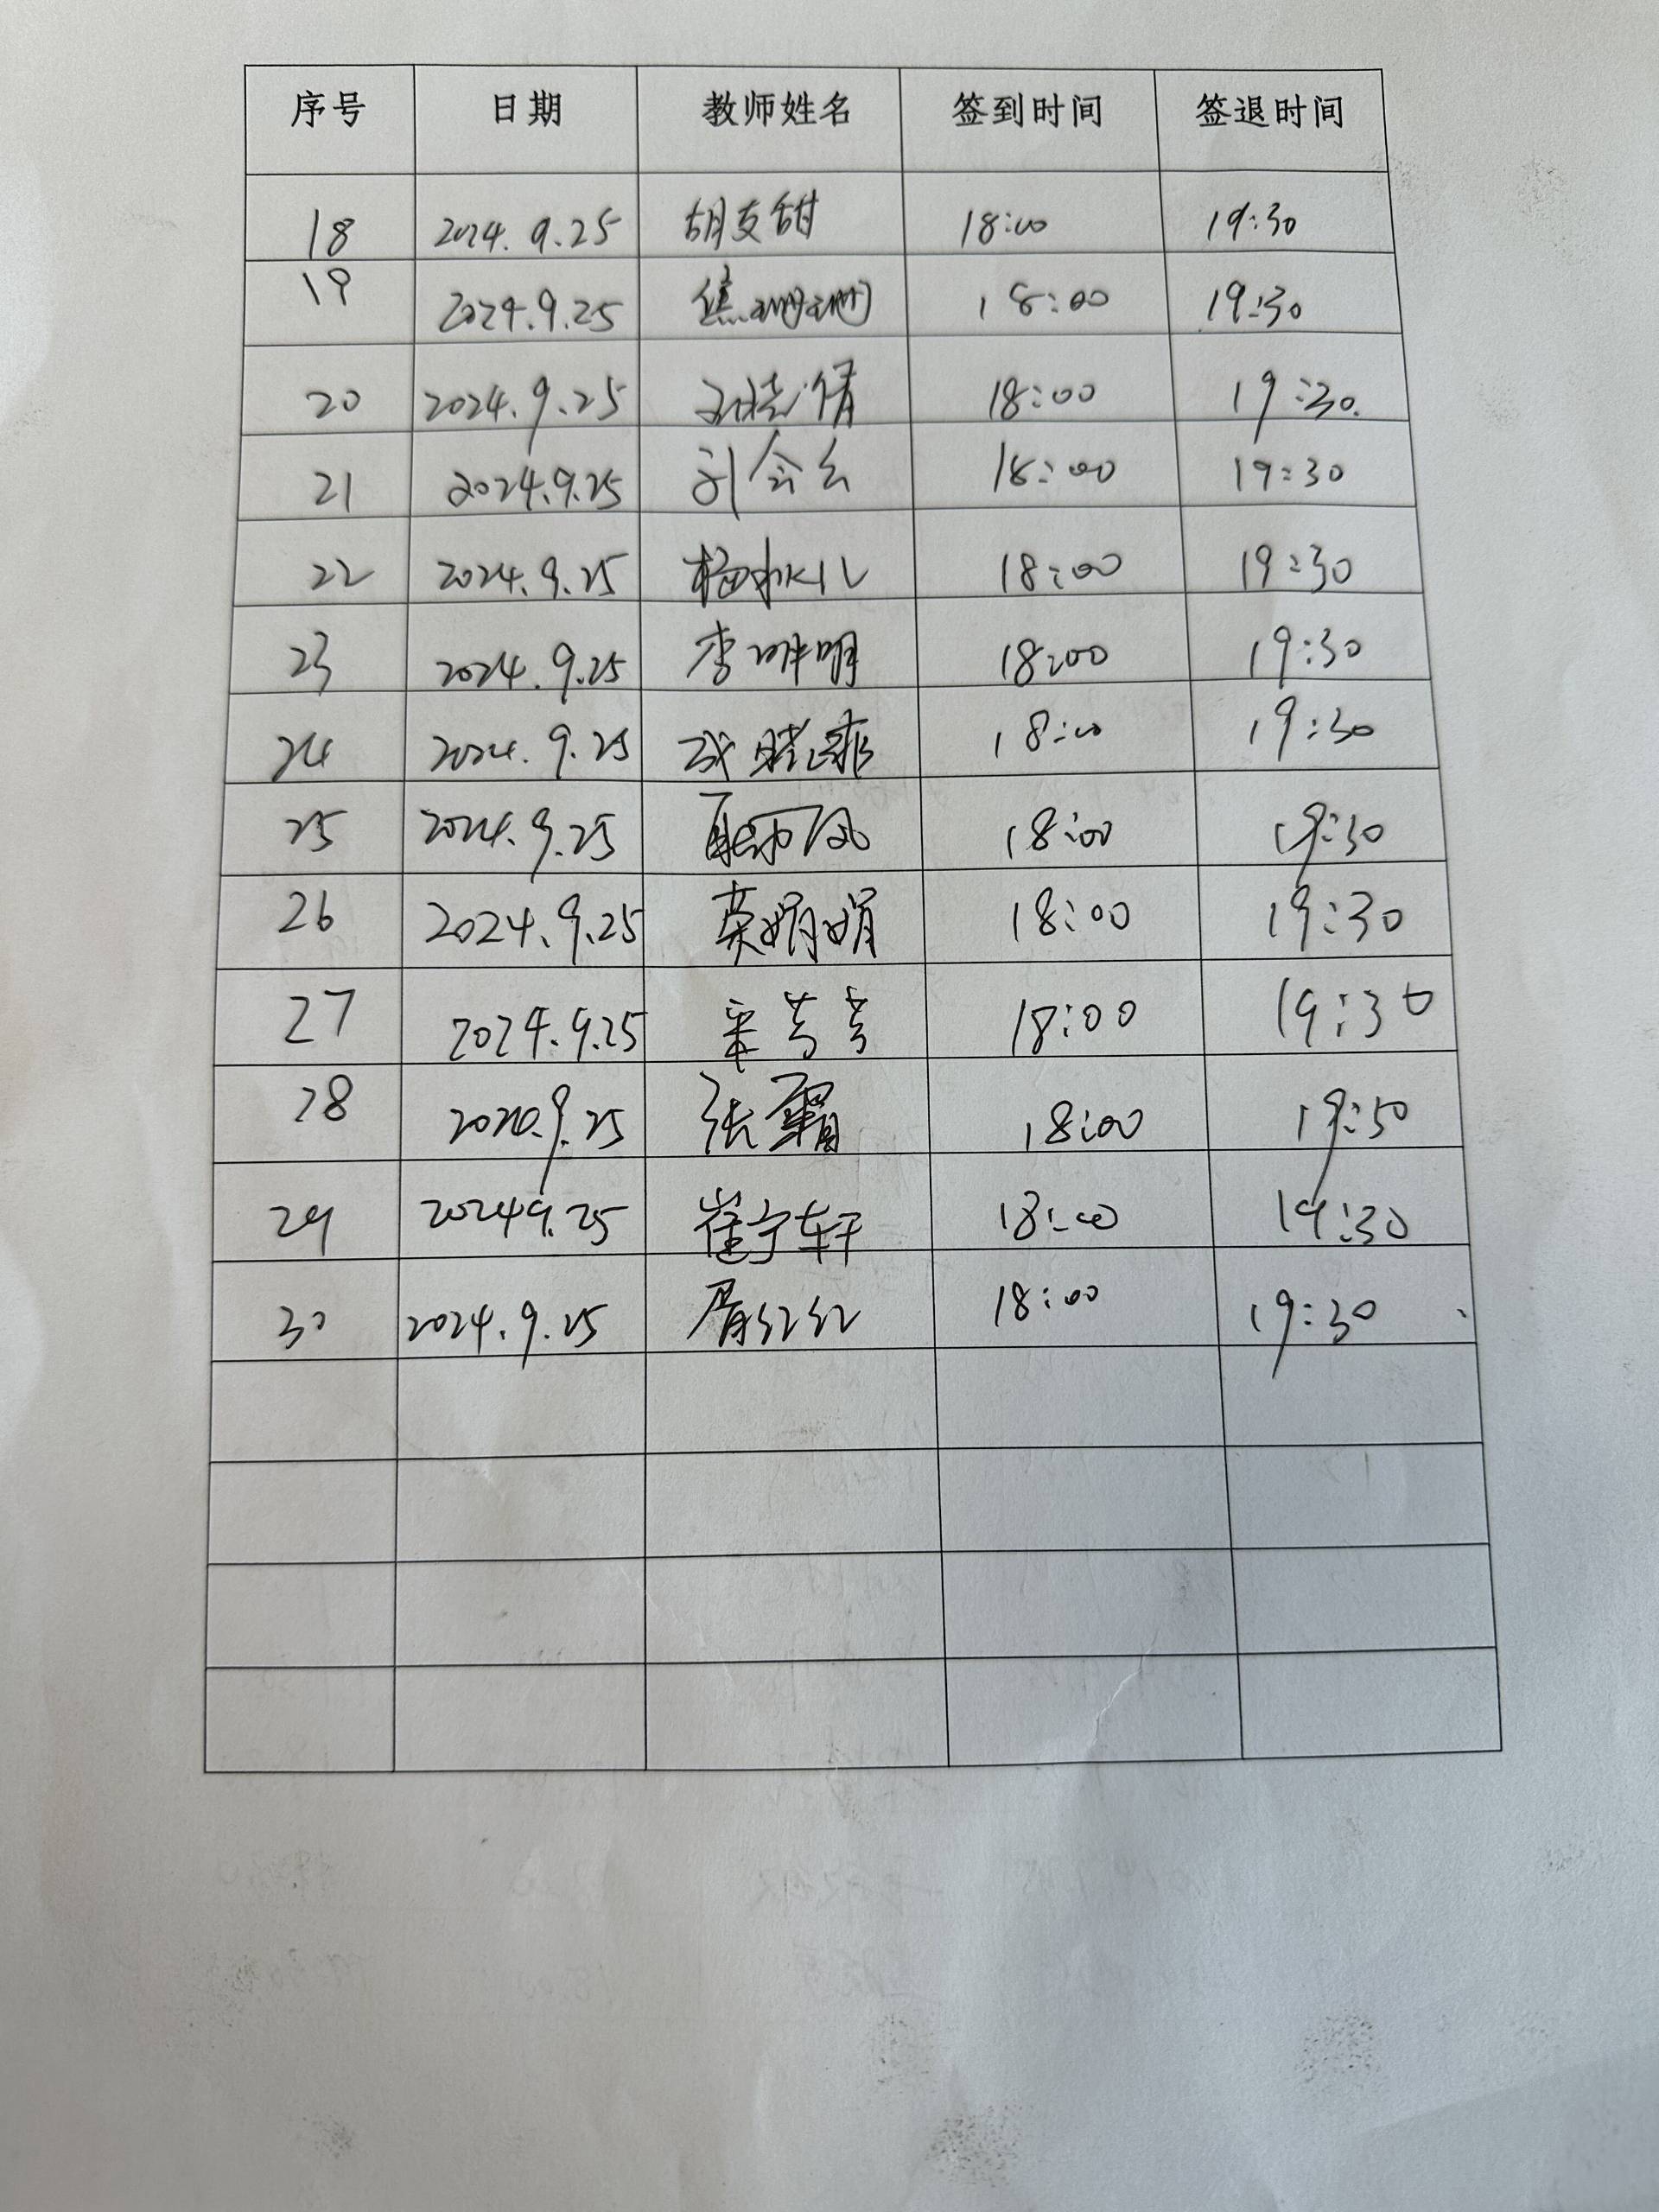 序号 日期 教师姓名 签到时间 签退时间
18 2024.9.25 胡支甜 18:00 19:30
19 2024.9.25 焦珊珊 18:00 19:30
20 2024.9.25 18:00 19:30.
21 2024.9.25 刘会云 18:00 19:30
22 2024.9.25 18:00 19:30
23 2024.9.25 18:00 19:30
24 2024.9.25 18:00 19:30
25 2024.9.25 18:00 19:30
26 2024.9.25 荣娟娟 18:00 19:30
27 2024.9.25 18:00 19:30
28 9.25 张霸 18:00 19:30
29 20249.25 崔宁轩 18:00 19:30
30 2024.9.25 屑红红 18:00 19:30